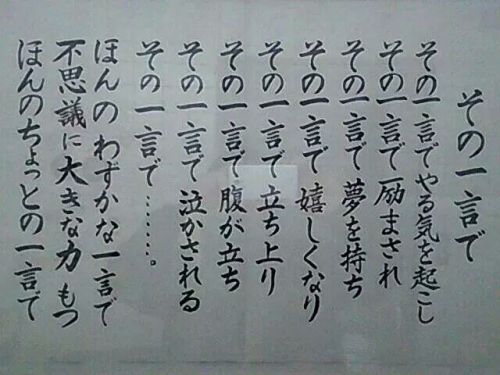 その一言で
その一言でやる気を起こし
その一言で励まされ
その一言で夢を持ち
その一言で嬉しくなり
その一言で立ち上り
その一言で腹が立ち
その一言で泣かされる
その一言で……。
ほんのわずかな一言で
不思議に大きな力もつ
ほんのちょっとの一言で